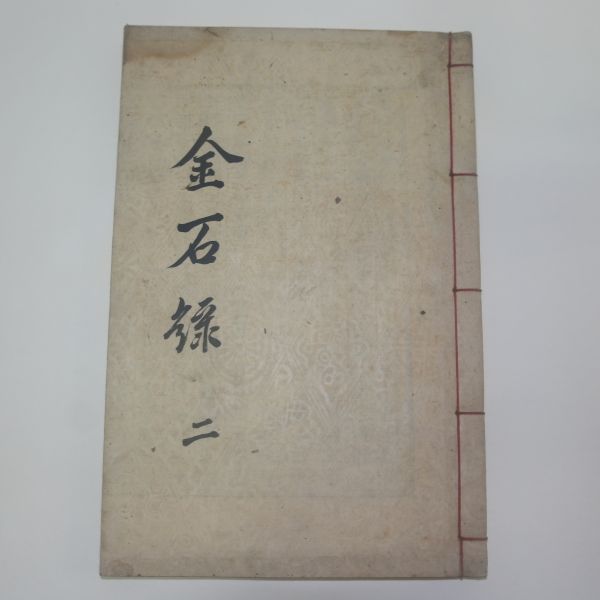 金石錄 二